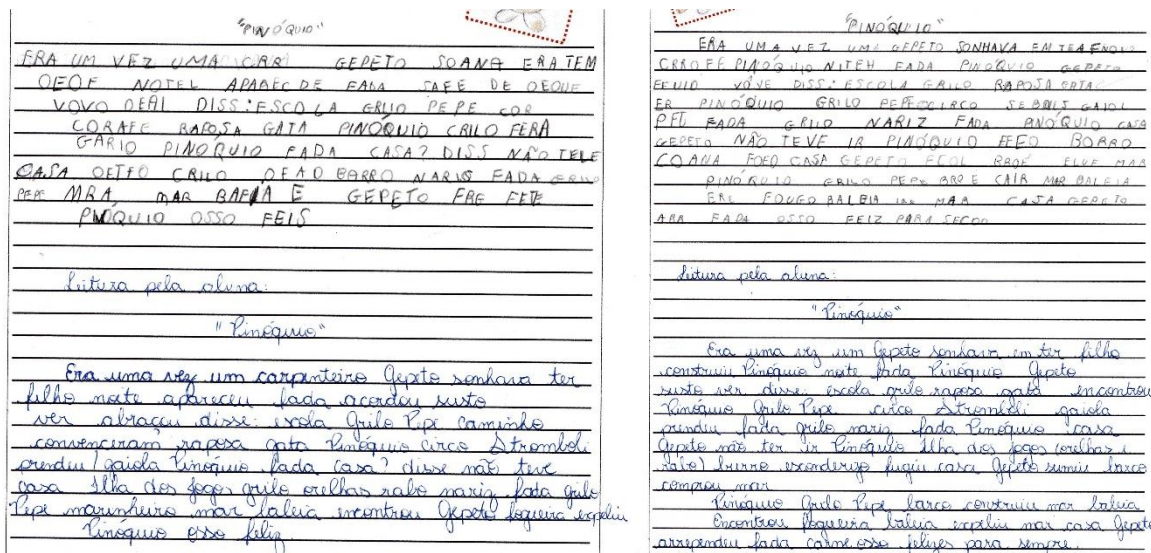 "PINÓQUIO"
ERA UM VEZ UMA CRRI GEPETO SOANA ERA TEM
OEOF NOTEL APARÉC DE FADA SAFE DE DEQUE
VOVO DEAL DISS: ESCOLA GRILO PEPE COR
CORAFE RAPOSA GATA PINÓQUIO CRILO FERA
GARIO PINOQUIO FADA CASA? DISS NÃO TELE
CASA OETFO CRILO DEAO BARRO NARIS FADA GRILO
PEPE MRA MAR BAFIA E GEPETO FRE FETE
PINOQUIO OSSO FEIS
Leitura pela aluna:
"Pinóquio"
Era uma vez um carpinteiro Gepeto sonhava ter
filho noite apareceu fada acordou susto
ver abraçou disse: escola Grilo Pepe caminho
convenceram raposa gata Pinóquio circo Stromboli
prendeu gaiola Pinóquio fada casa? disse não teve
casa Ilha dos jogos grilo orelhas rabo nariz fada grilo
Pepe marinheiro mar baleia encontrou Gepeto fogueira expeliu
Pinóquio osso feliz
"PINÓQUIO"
ERA UMA VEZ UMA GEPETO SONHAVA EM
CRRO FE PINOQUIO NITEH FADA PINOQUIO GEPETO
VOVE DISS: ESCOLA GRILO RAPOSA GATA
ER PINOQUIO GRILO PEPE CIRCO GAIOL
PFL FADA GRILO NARIZ FADA PINOQUIO CASA
GEPETO NÃO TEVE IR PINOQUIO FEFO BORRO
COANA FOFO CASA GEPETO FCOL BROF FLUF MAR
PINOQUIO GRILO PEPE BRO E CAIR MAR BALEIA
ERL FOUGO BALEIA MAR CASA GEPETO
ARA FADA OSSO FEIZ PARA SECOO
Leitura pela aluna:
"Pinóquio"
Era uma vez um Gepeto sonhava em ter filho
construiu Pinóquio noite fada Pinóquio Gepeto
susto ver disse: escola grilo raposa gata encontrou
Pinóquio Grilo Pepe circo Stromboli gaiola
prendeu fada grilo nariz fada Pinóquio casa
Gepeto não ter ir Pinóquio Ilha dos jogos (orelhas e
rabo) burro esconderijo fugiu casa Gepeto sumiu barco
comprou mar
Pinóquio Grilo Pepe barco construiu mar baleia
Encontrou fogueira baleia expeliu mar casa Gepeto
arrependeu fada carne osso felizes para sempre.